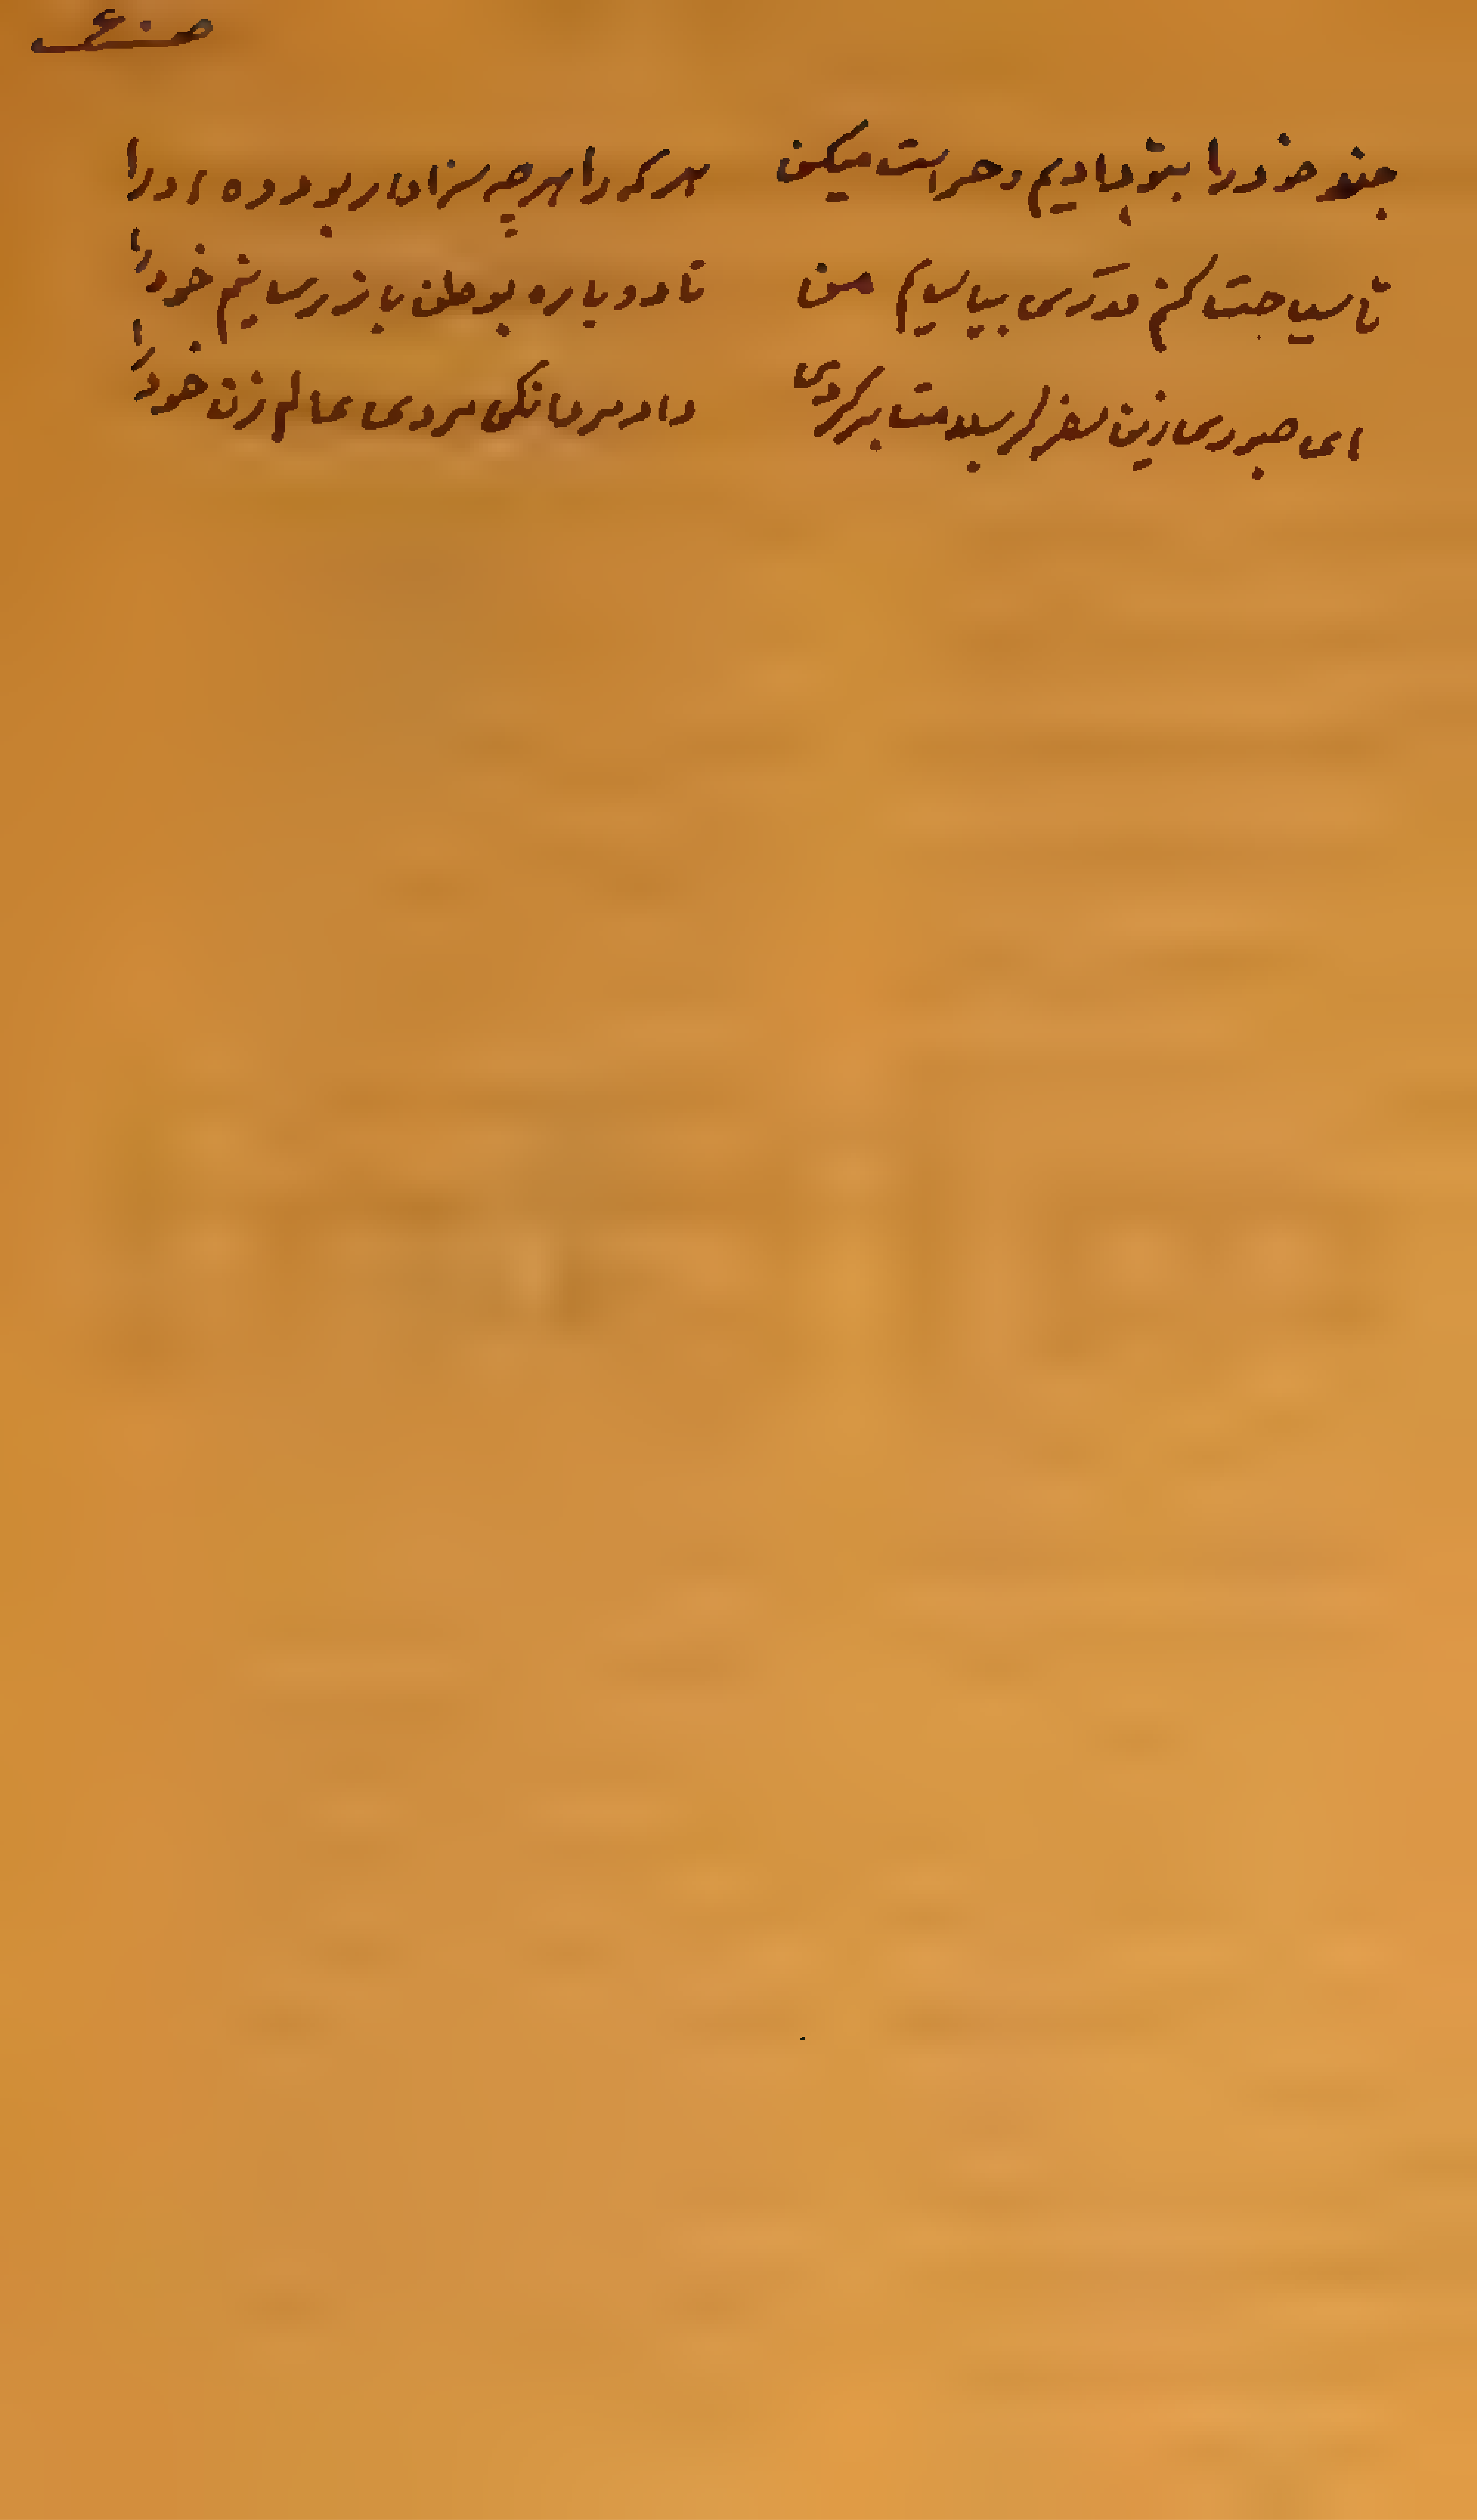 چند خود را بتو دادیم و حراست میکن هر کرا هر چه سزاوار بود ده او را
تا سیاحت کنم قدرس بیایم من تا دوباره بوطن باز رسانیم خود را
ای صبوری زین سفر گر سلامت برگردی داد مردانگی مردی عالم زن خود را